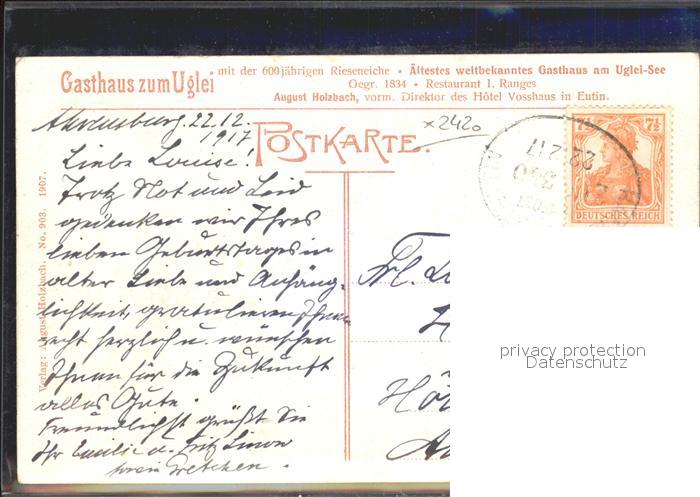 Gasthaus zum Uglei
mit der 600jährigen Rieseneiche • Ältestes weltbekanntes Gasthaus am Uglei-See
Gegr. 1834 • Restaurant I. Ranges
August Holzbach, vorm. Direktor des Hôtel Vosshaus in Eutin.
Ahrensburg. 22.12.
1917
POSTKARTE.
x2420
7½ 7½
DEUTSCHES REICH
Liebe Louise!
Trotz Not und Leid
gedenken wir Ihres
lieben Geburtstages in
alter Liebe und Anhäng-
lichkeit, gratulieren Ihnen
recht herzlich u. wünschen
Ihnen für die Zukunft
alles Gute.
Freundlichst grüßt Sie
Ihr Emilie u. Fritz
sowie Gretchen.
Frl.
Verlag: August Holzbach. No. 903. 1907.
privacy protection
Datenschutz